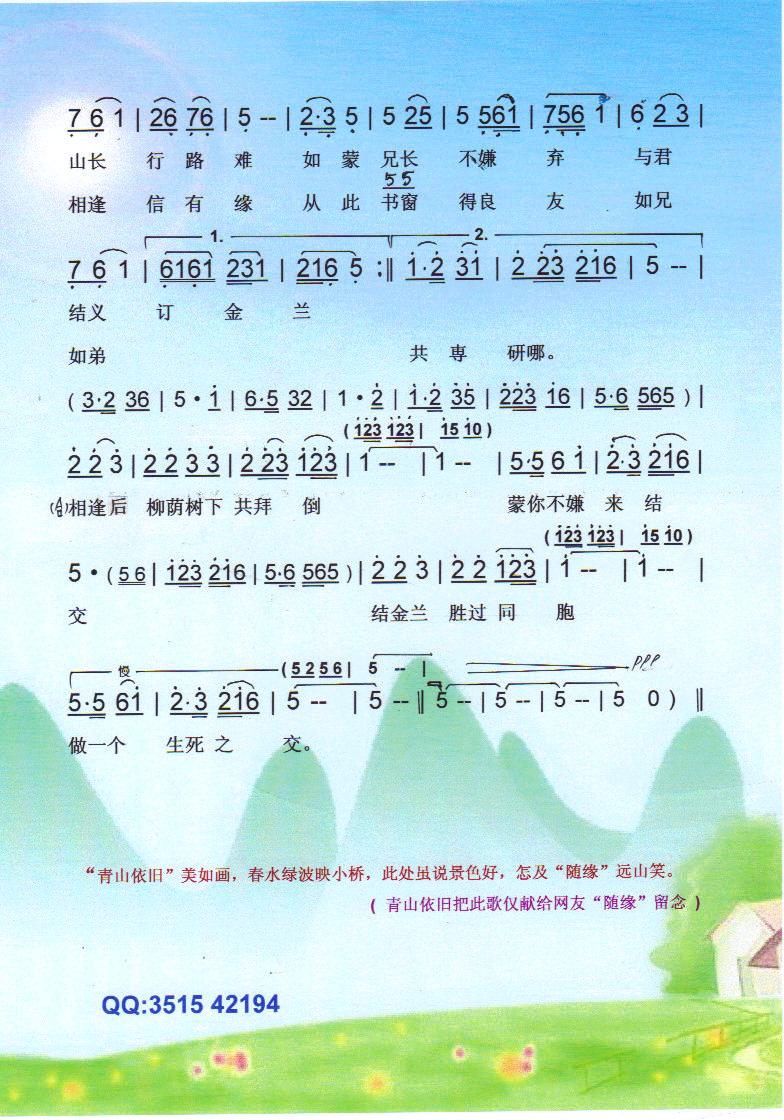 7 6 1 | 26 76 | 5 -- | 2·3 5 | 5 25 | 5 561 | 756 1 | 6 2 3 |
山长 行 路 难 如 蒙 兄长 不嫌 弃 与君
5 5
相逢 信 有 缘 从 此 书窗 得良 友 如兄
1. 2.
7 6 1 | 6161 231 | 216 5 :‖ 1·2 31 | 2 23 216 | 5 -- |
结义 订 金 兰
如弟 共 專 研哪。
( 3·2 36 | 5 · 1 | 6·5 32 | 1 · 2 | 1·2 35 | 223 16 | 5·6 565 ) |
(123 123 | 15 10 )
2 2 3 | 2 2 3 3 | 2 23 123 | 1 -- | 1 -- | 5·5 6 1 | 2·3 216 |
相逢后 柳荫树下 共拜 倒 蒙你不嫌 来 结
(123 123 | 15 10 )
5 · ( 5 6 | 123 216 | 5·6 565 ) | 2 2 3 | 2 2 123 | 1 -- | 1 -- |
交 结金兰 胜过 同 胞
慢 ( 5 2 5 6 | 5 -- | ppp
5·5 61 | 2·3 216 | 5 -- | 5 -- ‖ 5 -- | 5 -- | 5 -- | 5 0 ) ‖
做一个 生死 之 交。
“青山依旧”美如画，春水绿波映小桥，此处虽说景色好，怎及“随缘”远山笑。
( 青山依旧把此歌仅献给网友“随缘”留念 )
QQ:3515 42194